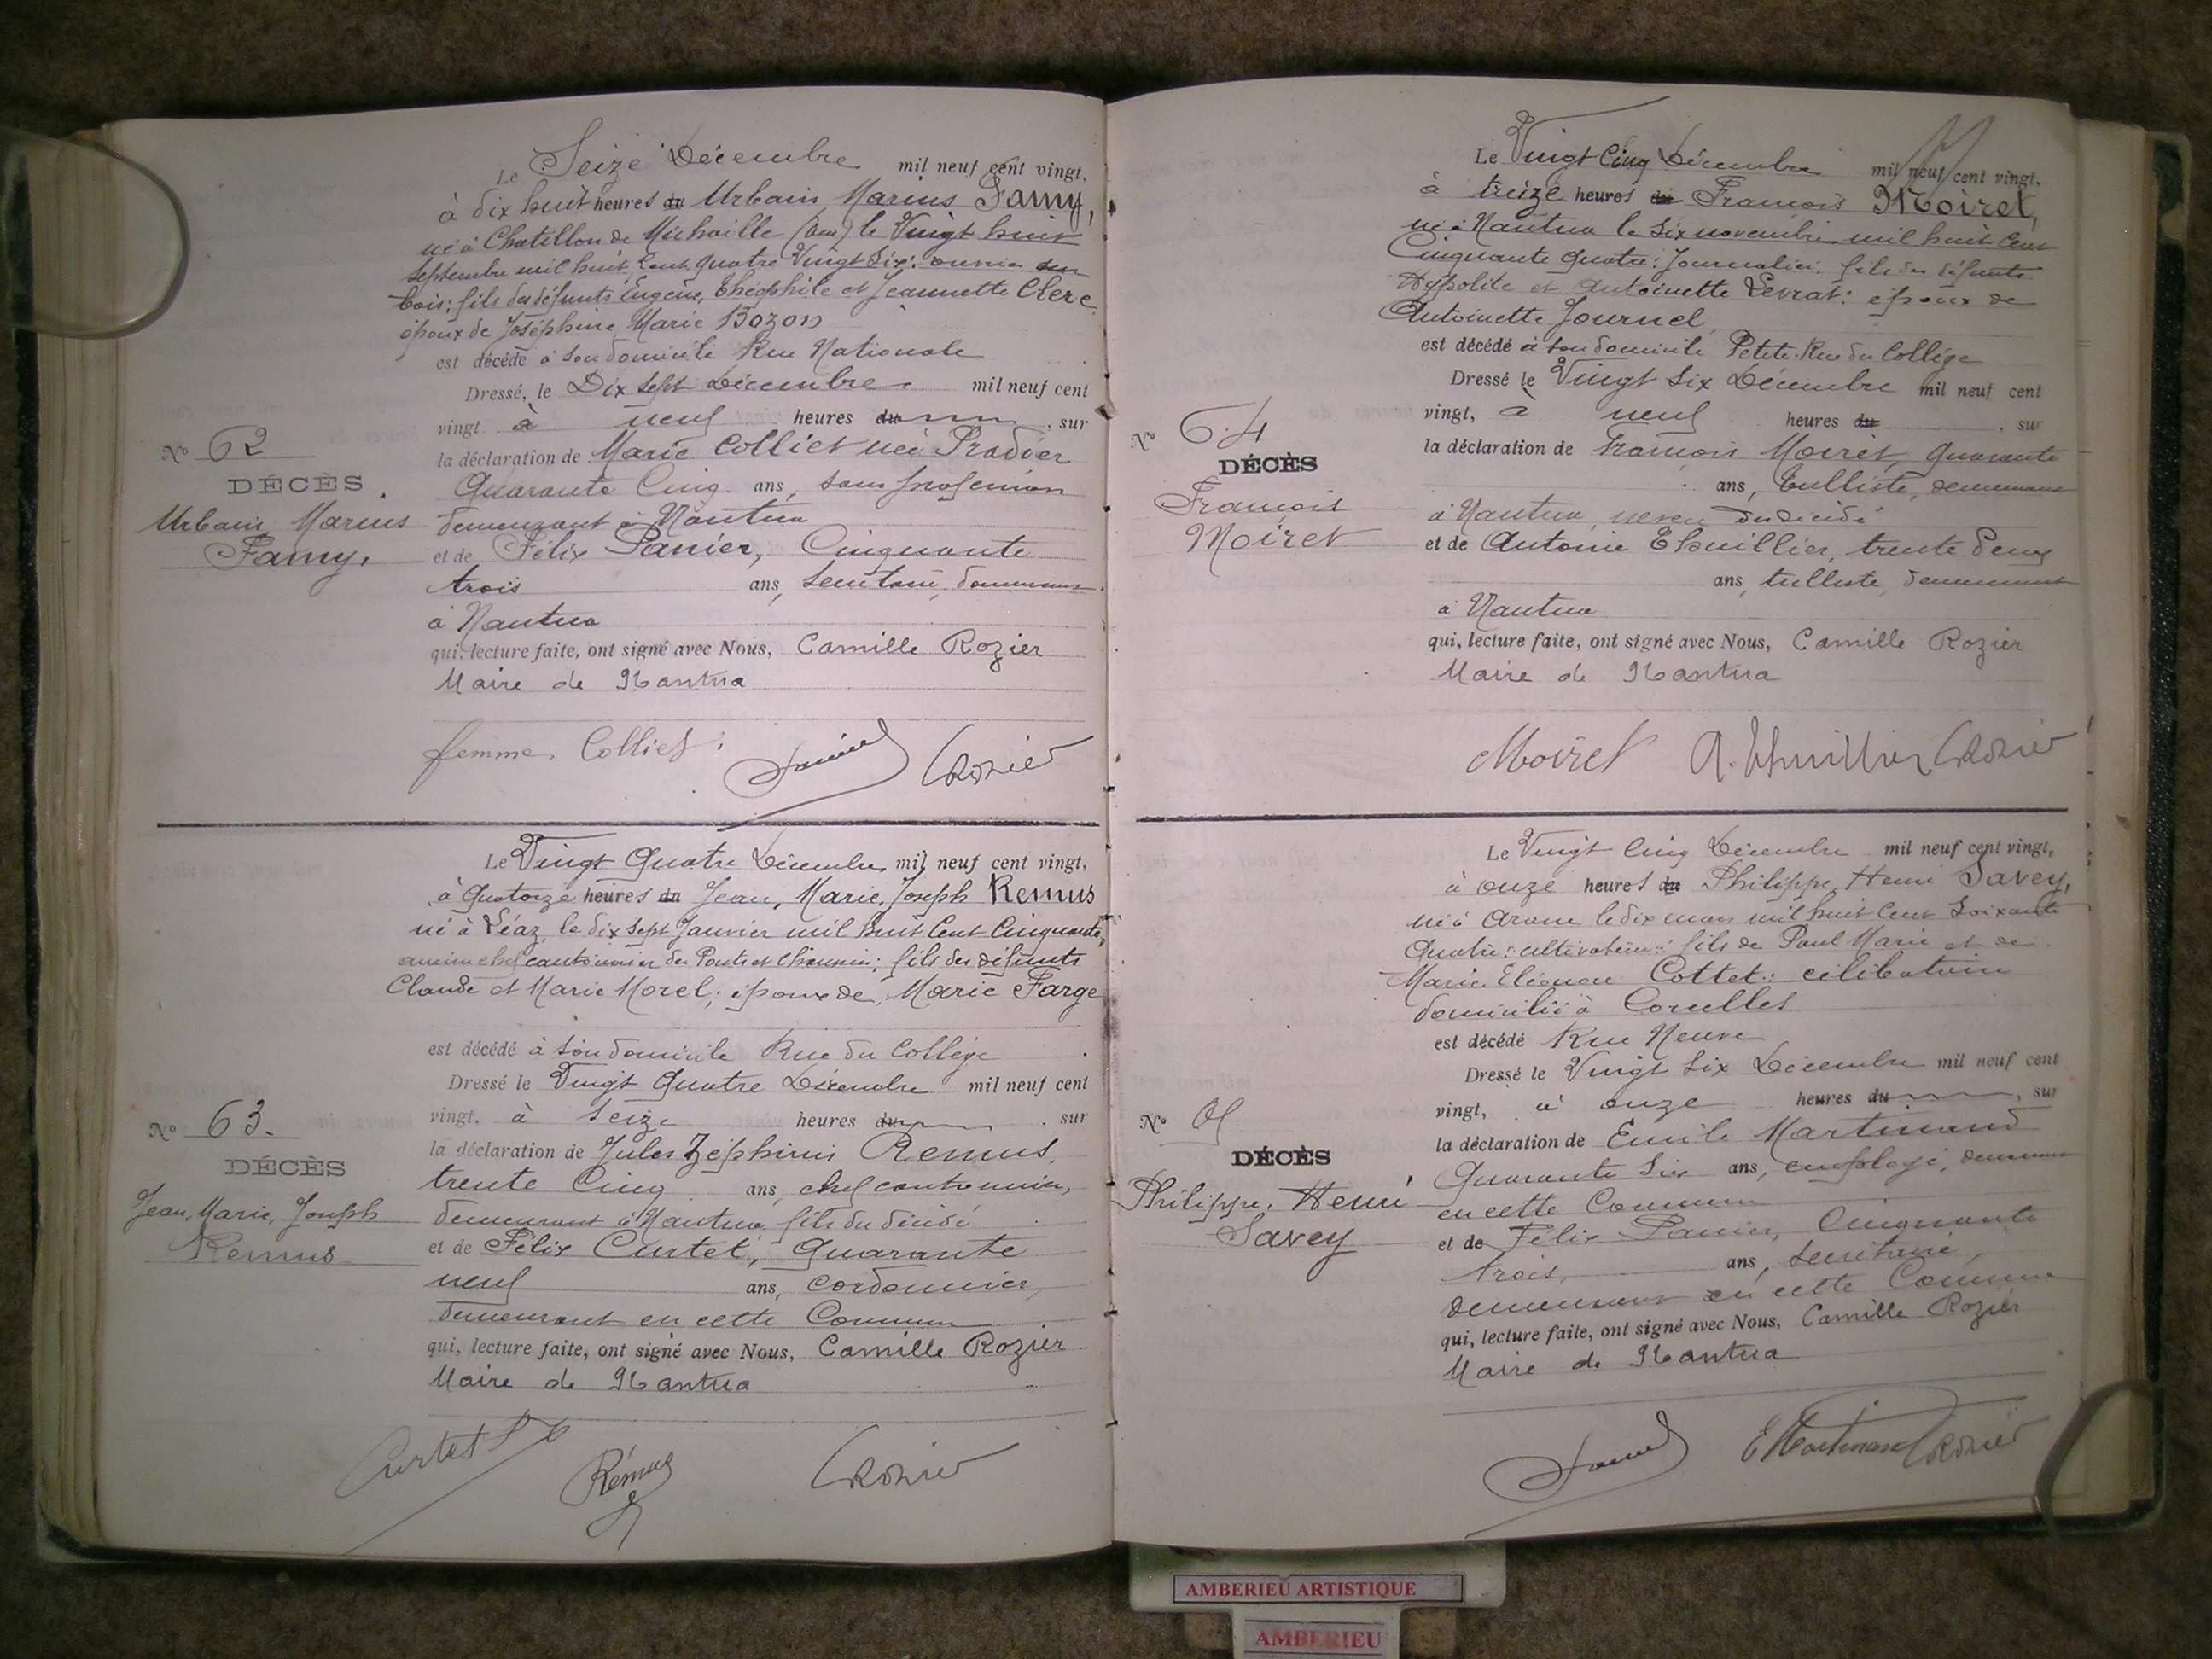 Le Seize Décembre mil neuf cent vingt,
à dix huit heures du Urbain Marius Famy,
né à Chatillon de Michaille (Ain) le Vingt huit
Septembre mil huit Cent quatre Vingt Six: ouvrier sur
bois; fils des défunts Eugène, Théophile et Jeannette Clerc
époux de Joséphine Marie Bozon
est décédé à son domicile Rue Nationale
Dressé, le Dix Sept Décembre mil neuf cent
vingt à neuf heures du , sur
la déclaration de Marie Colliet née Pradier
Quarante Cinq ans, sans profession
demeurant à Nantua
et de Félix Panier, Cinquante
trois ans, Secrétaire, demeurant
à Nantua
qui, lecture faite, ont signé avec Nous, Camille Rozier
Maire de Nantua
femme Colliet
CRozier
No 62
DÉCÈS
Urbain Marius
Famy.
Le Vingt Quatre Décembre mil neuf cent vingt,
à Quatorze heures du Jean, Marie, Joseph Remus
né à Léaz, le dix Sept Janvier mil huit Cent Cinquante,
ancien chef cantonnier des Ponts et Chaussées; fils des défunts
Claude et Marie Morel; époux de Marie Farge
est décédé à son domicile Rue du Collège
Dressé le Vingt Quatre Décembre mil neuf cent
vingt, à Seize heures du , sur
la déclaration de Jules Zéphirin Remus,
trente Cinq ans, chef cantonnier,
demeurant à Nantua fils du décédé
et de Félix Curtet, Quarante
neuf ans, cordonnier,
demeurant en cette Commune
qui, lecture faite, ont signé avec Nous, Camille Rozier
Maire de Nantua
Curtet
Rémus
CRozier
No 63.
DÉCÈS
Jean, Marie, Joseph
Remus
Le Vingt Cinq Décembre mil neuf cent vingt,
à treize heures du François Moiret,
né à Nantua le Six novembre mil huit Cent
Cinquante Quatre: Journalier: fils des défunts
Hypolite et Antoinette Levrat: époux de
Antoinette Journel
est décédé à son domicile Petite Rue du Collège
Dressé le Vingt Six Décembre mil neuf cent
vingt, à neuf heures du , sur
la déclaration de François Moiret, Quarante
ans, tulliste, demeurant
à Nantua, neveu du décédé
et de Antoine Thuillier, trente deux
ans, tulliste, demeurant
à Nantua
qui, lecture faite, ont signé avec Nous, Camille Rozier
Maire de Nantua
Moiret A. Thuillier CRozier
No 64
DÉCÈS
François
Moiret
Le Vingt Cinq Décembre mil neuf cent vingt,
à onze heures du Philippe, Henri Savey,
né à Aranc le dix mars mil huit Cent Soixante
Quatre: cultivateur: fils de Paul Marie et de
Marie Eléonore Cottet: célibataire
domicilié à Corcelles
est décédé Rue Neuve
Dressé le Vingt Six Décembre mil neuf cent
vingt, à onze heures du , sur
la déclaration de Emile Martinand
Quarante Six ans, employé, demeurant
en cette Commune
et de Félix Panier, Cinquante
trois, ans, Secrétaire,
demeurant en cette Commune
qui, lecture faite, ont signé avec Nous, Camille Rozier
Maire de Nantua
EMartinand CRozier
No
DÉCÈS
Philippe, Henri
Savey
AMBERIEU ARTISTIQUE
AMBERIEU